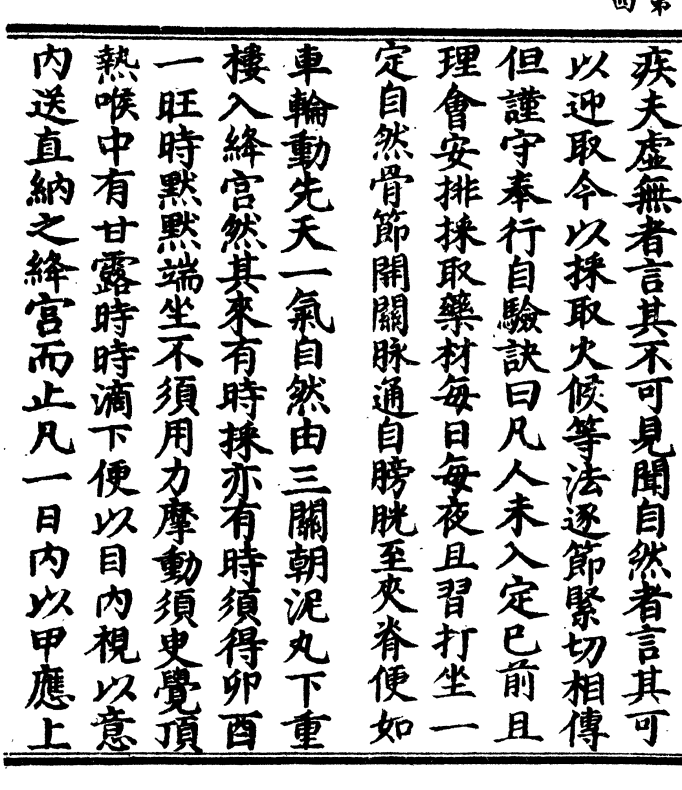 疾夫虛無者言其不可見聞自然者言其可
以迎取今以採取火候等法逐節緊切相傳
但謹守奉行自驗訣曰凡人未入定已前且
理會安排採取藥材每日每夜且習打坐一
定自然骨節開關脉通自膀胱至夾脊便如
車輪動先天一氣自然由三關朝泥丸下重
樓入絳宮然其來有時採亦有時須得卯酉
一旺時默默端坐不須用力摩動須臾覺頂
熱喉中有甘露時時滴下便以目內視以意
內送直納之絳宮而止凡一日內以甲應上